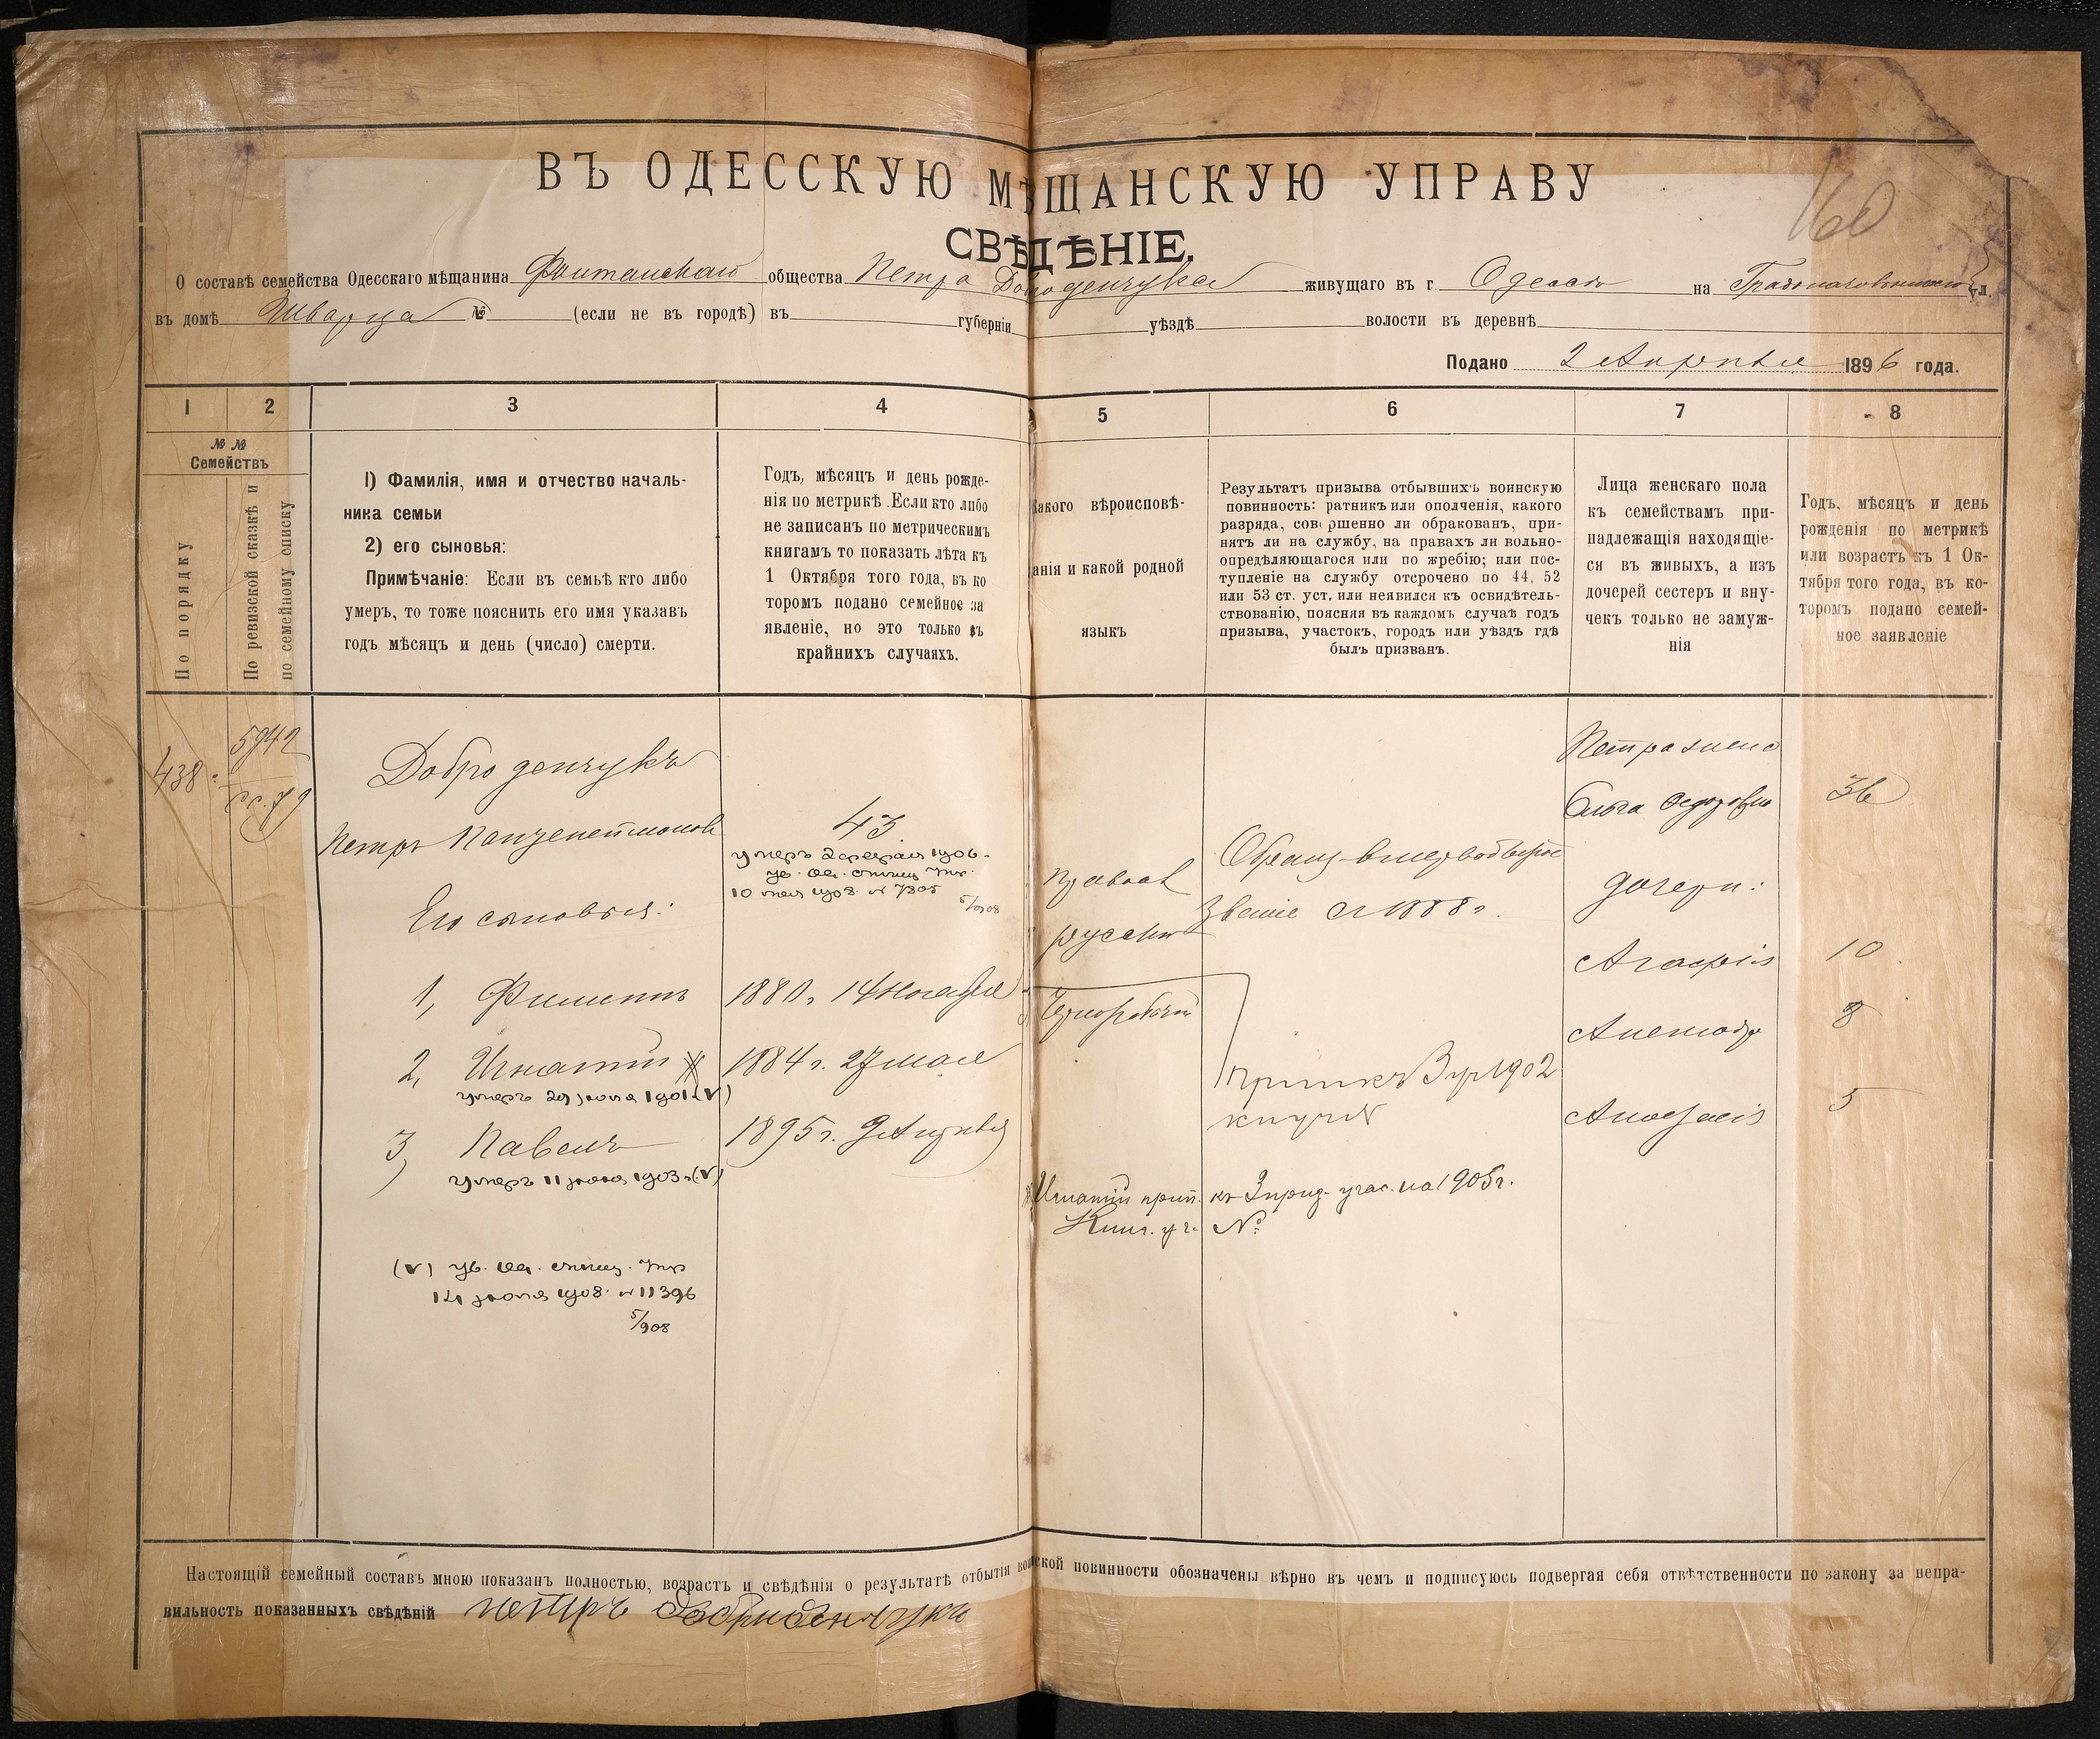 ВЪ ОДЕССКУЮ МѢЩАНСКУЮ УПРАВУ
160
СВѢДѢНІЕ.
О составѣ семейства Одесскаго мѣщанина Фонтанскаго общества Петра Доброденчука живущаго въ г. Одессѣ на ул.
въ домѣ Шварца № (если не въ городѣ) въ губерніи уѣздѣ волости въ деревнѣ
Подано 2 Апрѣля 1896 года.
1 2 3 4 5 6 7 8
№ №
Семействъ
По порядку
По ревизской сказкѣ и
по семейному списку
1) Фамилія, имя и отчество началь-
ника семьи
2) его сыновья:
Примѣчаніе: Если въ семьѣ кто либо
умеръ, то тоже пояснить его имя указавъ
годъ мѣсяцъ и день (число) смерти.
Годъ, мѣсяцъ и день рожде-
нія по метрикѣ. Если кто либо
не записанъ по метрическимъ
книгамъ то показать лѣта къ
1 Октября того года, въ ко
торомъ подано семейное за
явленіе, но это только въ
крайнихъ случаяхъ.
Какого вѣроисповѣ-
данія и какой родной
языкъ
Результатъ призыва отбывшихъ воинскую
повинность: ратникъ или ополченія, какого
разряда, совершенно ли обракованъ, при-
нятъ ли на службу, на правахъ ли вольно-
опредѣляющагося или по жребію; или пос-
тупленіе на службу отсрочено по 44, 52
или 53 ст. уст. или неявился къ освидѣтель-
ствованію, поясняя въ каждомъ случаѣ годъ
призыва, участокъ, городъ или уѣздъ гдѣ
былъ призванъ.
Лица женскаго пола
къ семействамъ при-
надлежащія находящіе-
ся въ живыхъ, а изъ
дочерей сестеръ и вну-
чекъ только не замуж-
нія
Годъ, мѣсяцъ и день
рожденія по метрикѣ
или возрастъ къ 1 Ок-
тября того года, въ ко-
торомъ подано семей-
ное заявленіе
438
5942
79
Доброденчукъ
Петръ
43
умеръ 2 февраля 1906
10 мая 1908 № 7805
Его сыновья:
1, Филиппъ 1880 г. 14 Ноября
2, Игнатій 1884 г. 27 мая
умеръ 1901 (v)
3, Павелъ 1895 г. 9 Апрѣля
умеръ 1903 (v)
(v) ув. Од. мѣщ. Упр
1908 № 11396
5/908
Правосл
русскій
Чернорабочій
званіе 1888 г.
1902
Игнатій прип. къ 3 приз. учас. на 1905 г.
№
Петра жена
Ольга Федоровна 36
дочери:
Агафія 10
8
Анастасія 5
Настоящій семейный составъ мною показанъ полностью, возрастъ и свѣдѣнія о результатѣ отбытія воинской повинности обозначены вѣрно въ чемъ и подписуюсь подвергая себя отвѣтственности по закону за непра-
вильность показанныхъ свѣдѣній Петръ Доброденчукъ